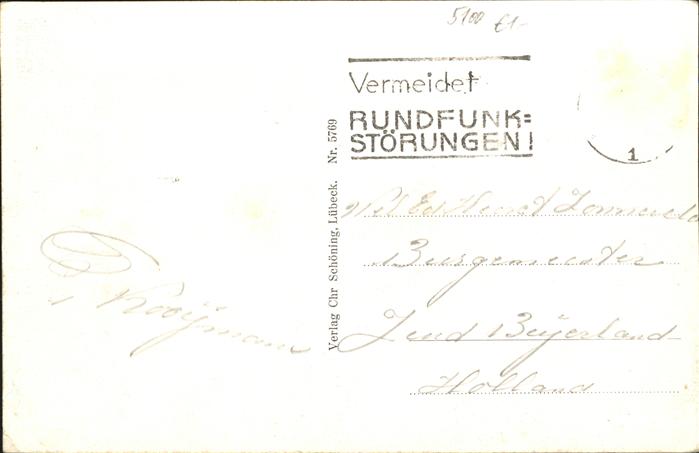 5100 €1-
Vermeidet
RUNDFUNK=
STÖRUNGEN!
1
Verlag Chr Schöning, Lübeck. Nr. 5769
Wel Ed
Burgemeester
Zuid Beijerland
Holland
Kooijman